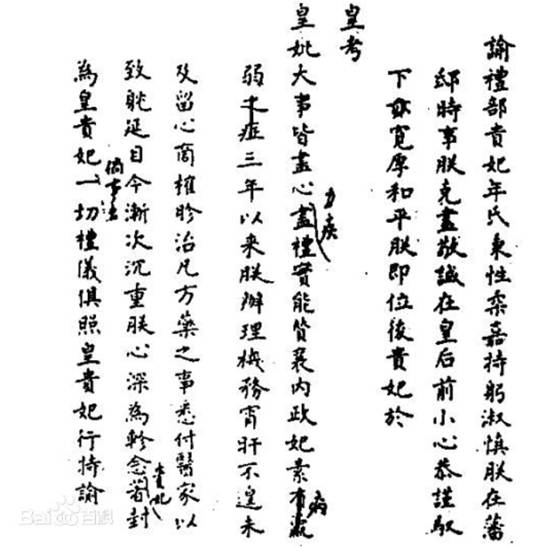 諭禮部貴妃年氏秉性柔嘉持躬淑慎朕在藩
邸時事朕克盡敬誠在皇后前小心恭謹馭
下亦寬厚和平朕即位後貴妃於
皇考
皇妣大事皆盡心力疾盡禮實能贊襄內政妃素病羸
弱之症三年以來朕辦理機務宵旰不遑未
及留心商榷診治凡方藥之事悉付醫家以
致躭延目今漸次沉重朕心深為軫念貴妃着封
為皇貴妃倘事出一切禮儀俱照皇貴妃行特諭
Baidu百科